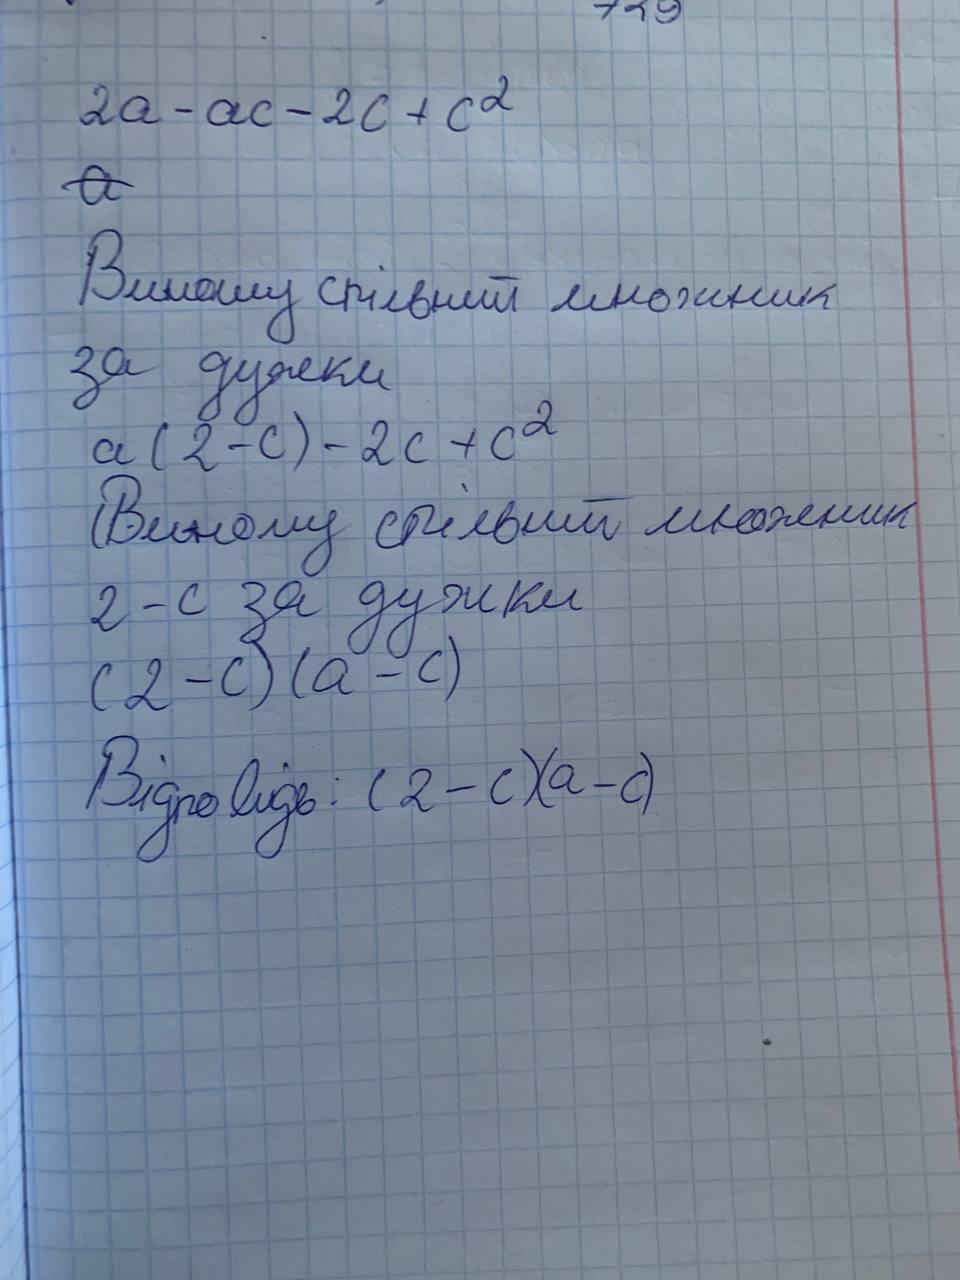 729
2a - ac - 2c + c²
a
Виношу спільний множник
за дужки
a(2-c) - 2c + c²
Виношу спільний множник
2-c за дужки
(2-c)(a-c)
Відповідь: (2-c)(a-c)